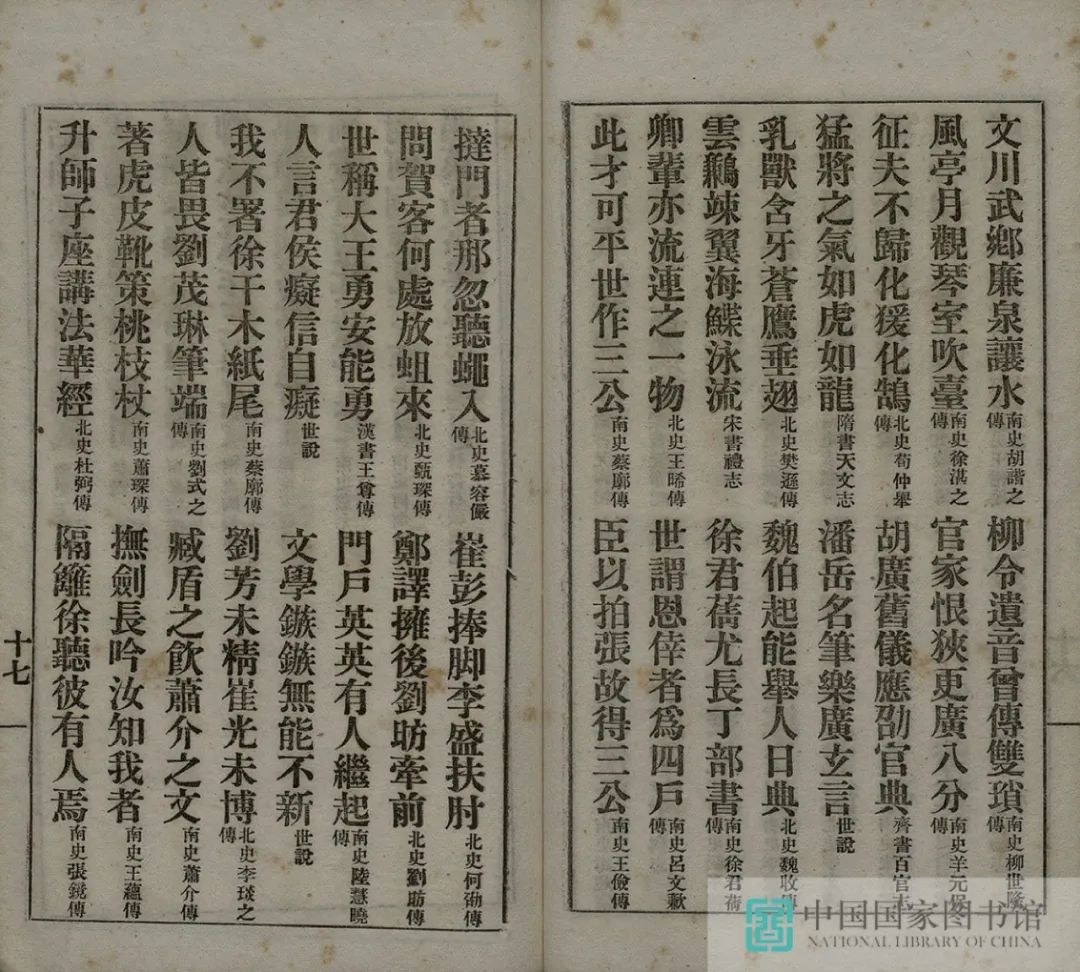 文川武鄉廉泉讓水南史胡諧之傳 柳令遺音曾傳雙璅南史柳世隆傳
風亭月觀琴室吹臺南史徐湛之傳 官家恨狹更廣八分南史羊元保傳
征夫不歸化猨化鵠北史荀仲舉傳 胡廣舊儀應劭官典齊書百官志
猛將之氣如虎如龍隋書天文志 潘岳名筆樂廣玄言世說
乳獸含牙蒼鷹垂翅北史樊遜傳 魏伯起能舉人日典北史魏收傳
雲鶼竦翼海鰈泳流宋書禮志 徐君蒨尤長丁部書南史徐君蒨傳
卿輩亦流連之一物北史王晞傳 世謂恩倖者爲四戶南史呂文歉傳
此才可平世作三公南史蔡廓傳 臣以拍張故得三公南史王儉傳
撻門者那忽聽蠅入北史慕容儼傳 崔彭捧脚李盛扶肘北史何泐傳
問賀客何處放蛆來北史甄琛傳 鄭譯擁後劉昉牽前北史劉昉傳
世稱大王勇安能勇漢書王尊傳 門戶英英有人繼起南史陸慧曉傳
人言君侯癡信自癡世說 文學鏃鏃無能不新世說
我不署徐干木紙尾南史蔡廓傳 劉芳未精崔光未博北史李琰之傳
人皆畏劉茂琳筆端南史劉式之傳 臧盾之飲蕭介之文南史蕭介傳
著虎皮靴策桃枝杖南史蕭琛傳 撫劍長吟汝知我者南史王蘊傳
升師子座講法華經北史杜弼傳 隔籬徐聽彼有人焉南史張鏡傳
十七
中国国家图书馆
NATIONAL LIBRARY OF CHINA